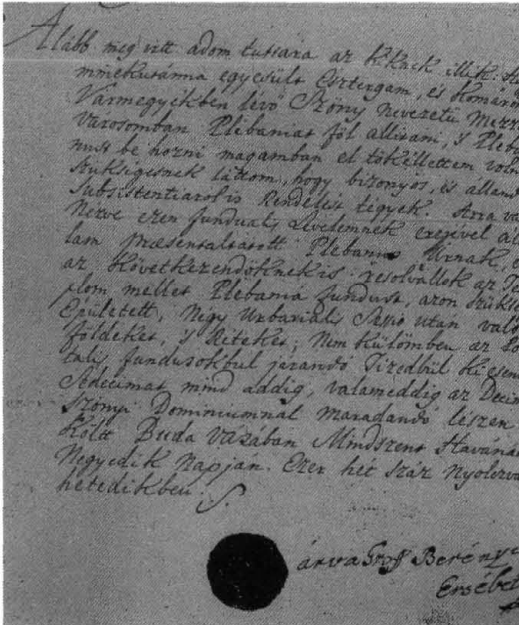 Alább meg irtt adom tuttára az kiknek illik: 
minekutánna egyesült Esztergam, és Komárom
Vármegyékben lévő Szőny nevezetű Mező
Városomban Plébániát föl állitani, 's Pleba
nust bé hozni magamban el tökéllettem voln
szükségesnek láttom, hogy bizonyos, és álland
Subsistentiárol is Rendelést tégyek. Arra va
Nézve ezen fundualis Levelemnek erejével ál
lam praesentáltatott Plebanus Urnak,
az Következendőknek is resolválok az Te
plom mellet Plebania fundust, azon szüksé
Épülettel, Négy Urbarialis Sessio után való
földeket, 's Réteket; Nem külömben az
talis fundusokbul járandó Tizedbül ki esen
Sedecimát mind addig, valameddig az Decim
Szőnyi Dominiumnál maradandó lészen
Költt Buda Várában Mindszent Havának
Negyedik Napján. Ezer hét száz Nyolczva
hetedikben.
árva Groff Berény
Ersébet